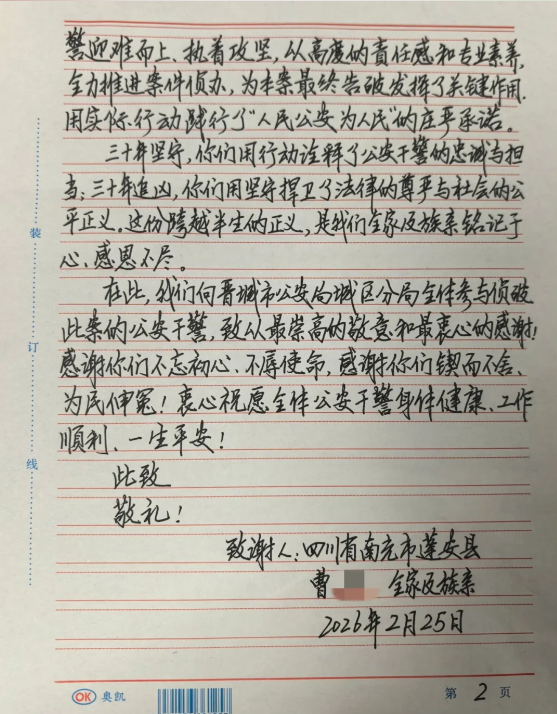 警迎难而上、执着攻坚，从高度的责任感和专业素养，
全力推进案件侦办，为本案最终告破发挥了关键作用，
用实际行动践行了“人民公安为人民”的庄严承诺。
三十年坚守，你们用行动诠释了公安干警的忠诚与担
当；三十年追凶，你们用坚守捍卫了法律的尊严与社会的公
平正义。这份跨越半生的正义，是我们全家及族亲铭记于
心、感恩不尽。
在此，我们向晋城市公安局城区分局全体参与侦破
此案的公安干警，致以最崇高的敬意和最衷心的感谢！
感谢你们不忘初心、不辱使命，感谢你们锲而不舍、
为民伸冤！衷心祝愿全体公安干警身体健康、工作
顺利、一生平安！
此致
敬礼！
致谢人：四川省南充市蓬安县
曹 全家及族亲
2026年2月25日
装
订
线
OK 奥凯
第 2 页